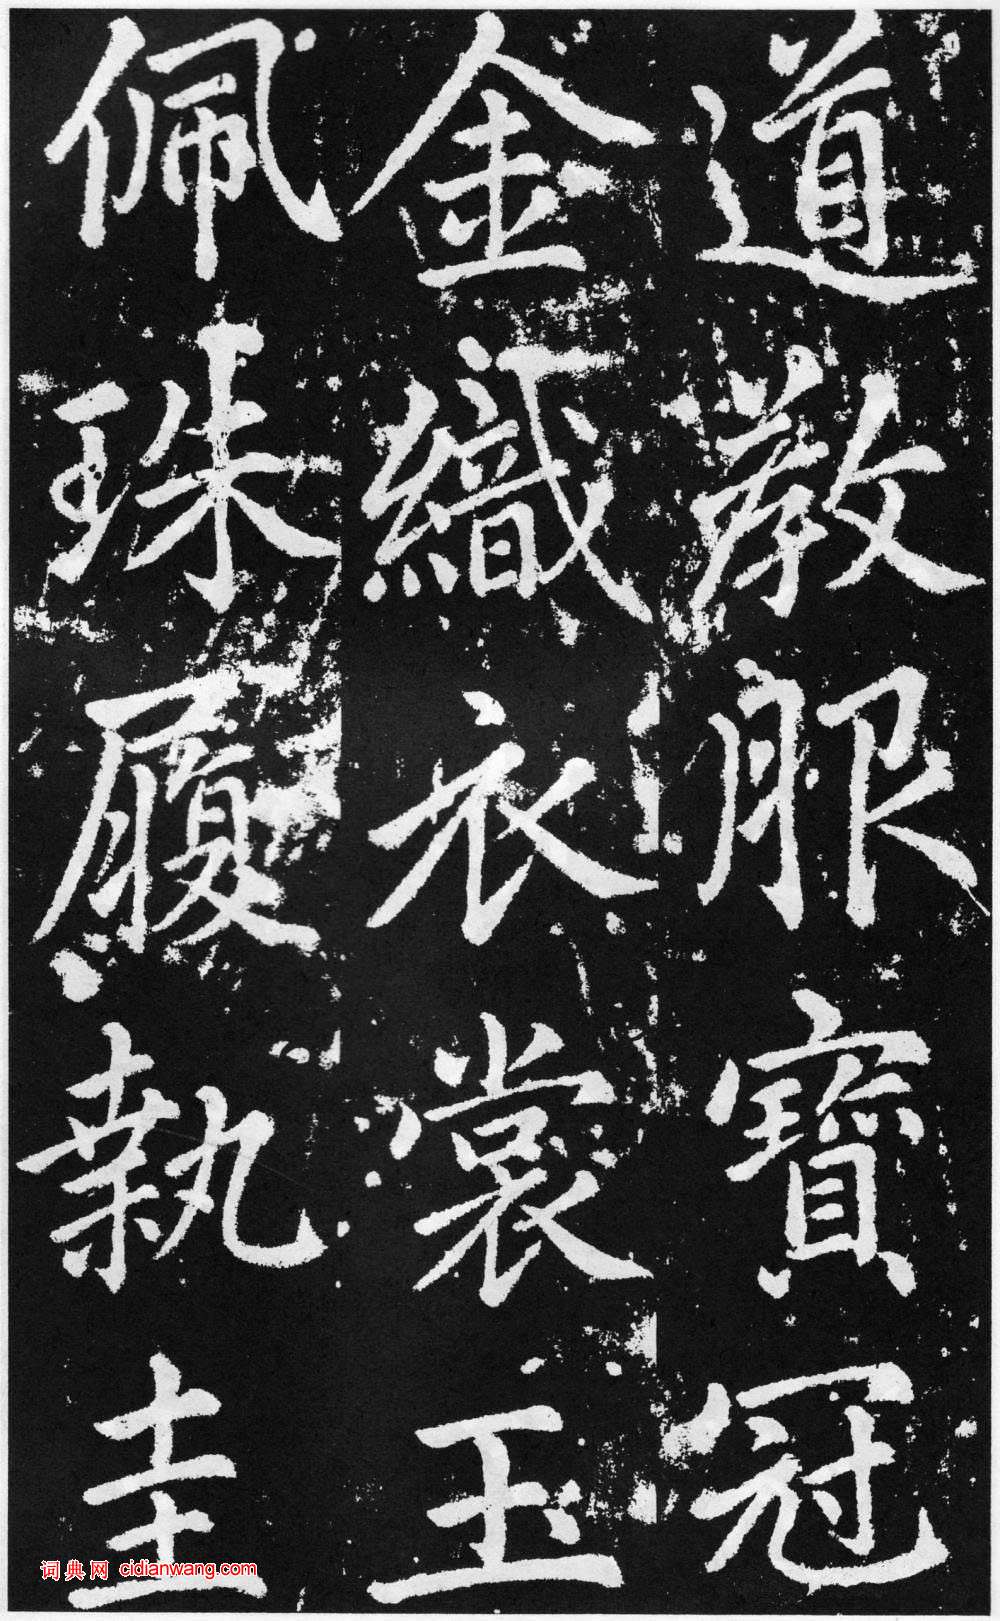 道教服寶冠
金織衣裳玉
佩珠履執圭
词典网 cidianwang.com